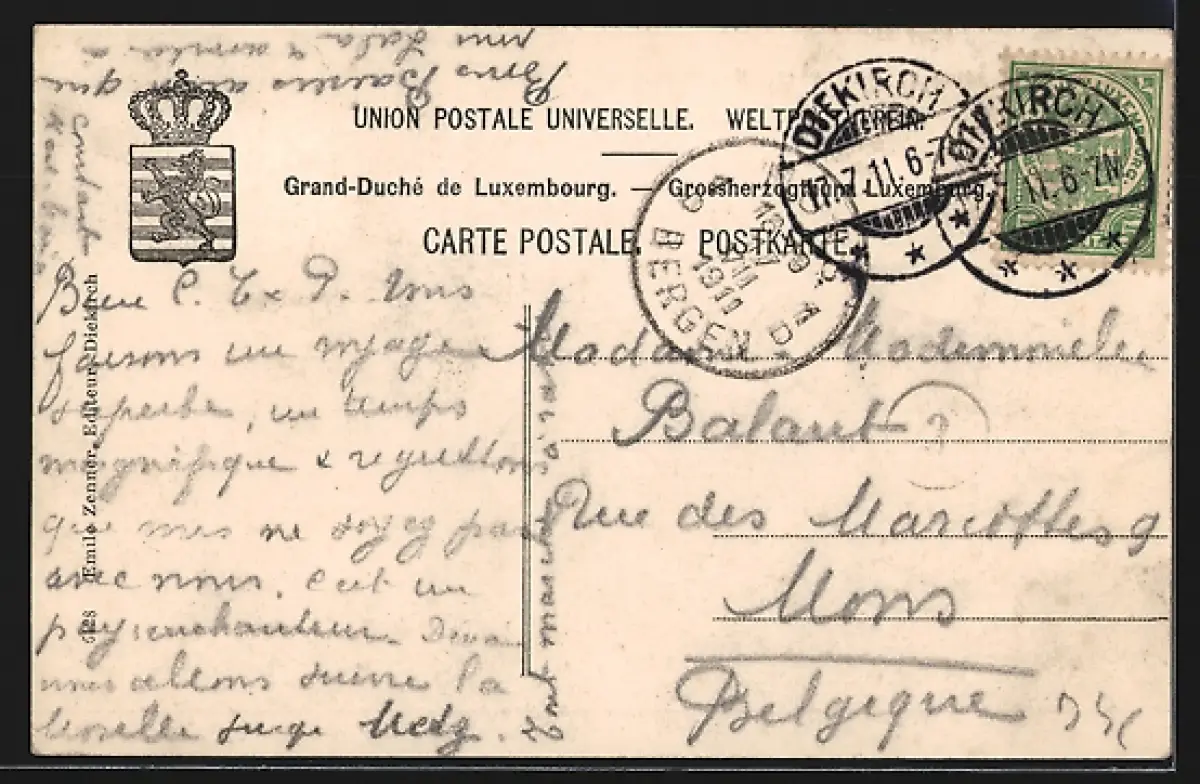 UNION POSTALE UNIVERSELLE. WELTPOSTVEREIN.
Grand-Duché de Luxembourg. — Grossherzogthum Luxemburg.
CARTE POSTALE. POSTKARTE.
DIEKIRCH
17.7.11.6-7N
DIEKIRCH
7.11.6-7N
BERGEN
1911
5128 Emile Zenner, Editeur, Diekirch
C. T. P. Nous
faisons un voyage
superbe, un temps
magnifique & regrettons
que ne soyez pas
avec nous. C'est un
pays enchanteur
nous allons suivre la
Moselle jusque Metz.
Tout marche
Bons Baisers
Madame & Mademoiselle
Balaut
Rue des Marcottes 9
Mons
Belgique